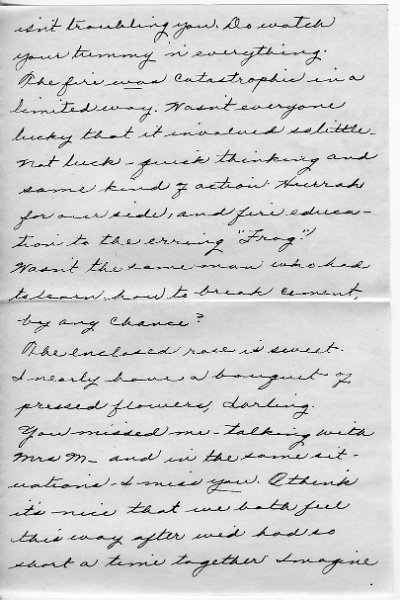 isn't troubling you. Do watch
your tummy 'n everything.
The fire was catastrophic in a
limited way. Wasn't everyone
lucky that it involved so little-
not luck - quick thinking and
same kind of action. Hurrah
for our side, and fire educa-
tion to the erring "Frog"!
Wasn't the same man who had
to learn how to break cement,
by any chance?
The enclosed rose is sweet.
I nearly have a bouquet of
pressed flowers, darling.
You missed me - talking with
Mrs M- and in the same sit-
uations - I miss you. I think
it's nice that we both feel
this way after we'd had so
short a time together. Imagine